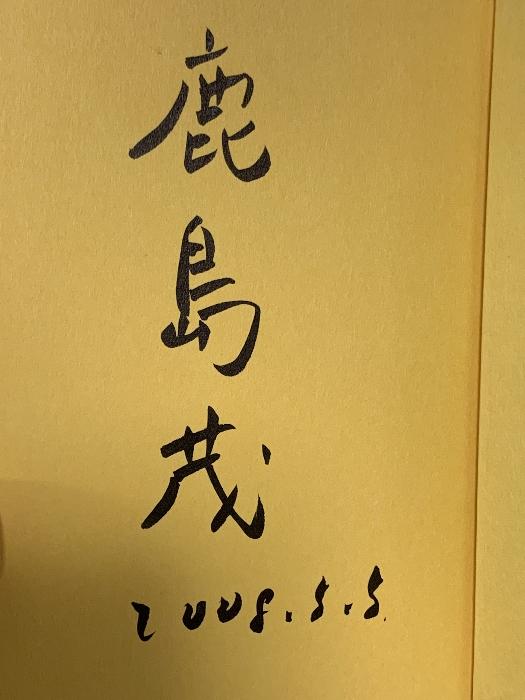 鹿島茂
2008.5.5.